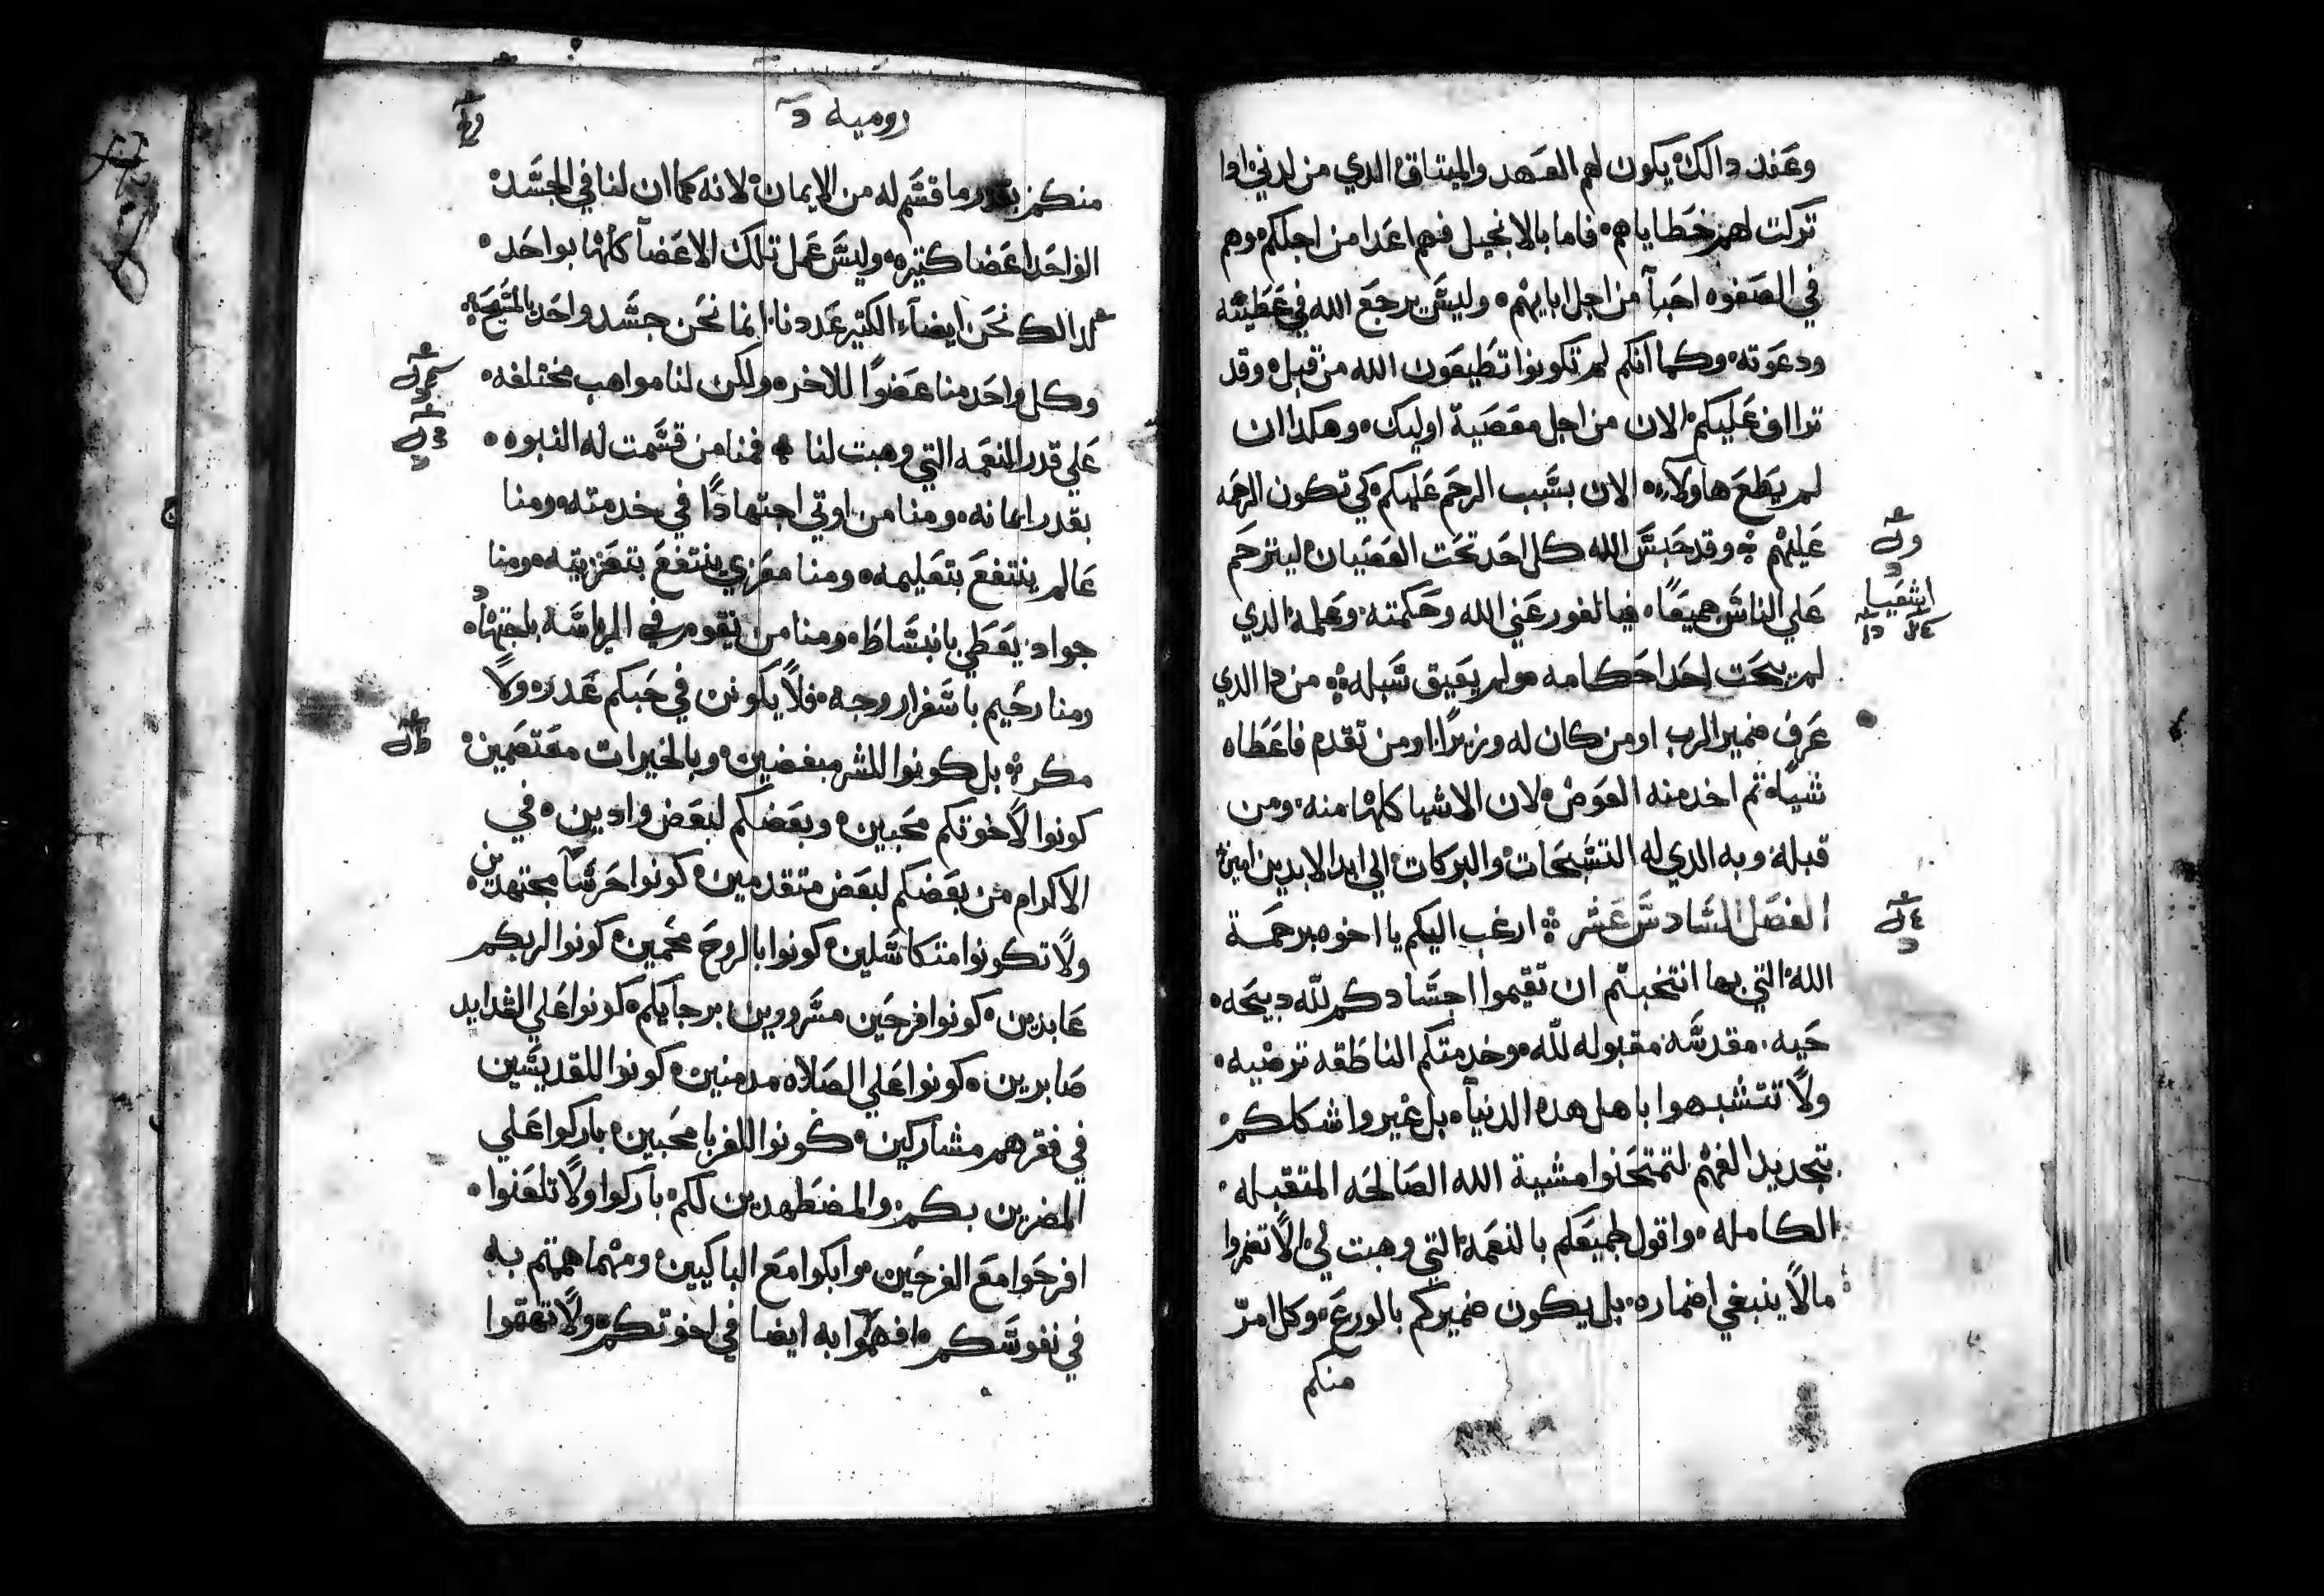 وعند دالك يكون لهم العهد والميتاق الدي من لدني ادا
تركت لهم خطاياهم فاما بالانجيل فهم اعدا من اجلكم وهم
في الصفوه احبآ من اجل ابايهم وليس يرجع الله في عطيته
ودعوته وكما انكم لم تكونوا تطيعون الله من قبل وقد
تراف عليكم الان من اجل معصية اوليك وهكدا ان
لم يطع هاولاء الان بسبب الرحم عليكم كي تكون الرحمه
عليهم وقد حبس الله كل احد تحت العصيان ليترحم
علي الناس جميعًا فيا لغور غني الله وحكمته وعلمه الدي
لم يبحت احد احكامه ولم يعيق سبله من دا الدي
عرف ضمير الرب او من كان له وزيرًا او من تقدم فاعطاه
شيًا تم اخد منه العوض لان الاشيا كلها منه ومن
قبله وبه الدي له التسبحات والبركات الي ابد الابدين امين
الفصل السادس عشر ارغب اليكم يا اخوه برحمة
الله التي بها انتخبتم ان تقيموا اجسادكم لله دبيحه
حيه مقدسه مقبوله لله وخدمتكم الناطقه ترضيه
ولا تتشبهوا باهل هده الدنيا بل غيروا شكلكم
بتجديد الفهم لتمتحنوا مشية الله الصالحه المتقبله
الكامله واقول لجميعكم بالنعمه التي وهبت لي الا تضمروا
مالا ينبغي اضماره بل يكون ضميركم بالورع وكل امرّ
منكم
اشعيا
روميه د
منكم بقدر ما قسم له من الايمان لانه كما ان لنا في الجسد
الواحد اعضا كتيره وليس عمل تلك الاعضآ كلها بواحد
كدالك نحن ايضآ الكتير عددنا انما نحن جسد واحد بالمسيح
وكل واحد منا عضوًا للاخر ولكن لنا مواهب مختلفه
علي قدر النعمه التي وهبت لنا فمنا من قسمت له النبوه
بقدر ايمانه ومنا من اوتي اجتهادًا في خدمته ومنا
عالم ينتفع بتعليمه ومنا معزي ينتفع بتعزيته ومنا
جواد يعطي بانبساط ومنا من يقوم في الرياسة باجتهاد
ومنا رحيم باسفرار وجه فلا يكونن في حبكم غدر ولا
مكر بل كونوا للشر مبغضين وبالخيرات معتصمين
كونوا لاخوتكم محبين وبعضكم لبعض وادين في
الاكرام من بعضكم لبعض متقدمين كونوا حرسآ مجتهدين
ولا تكونوا متكاسلين كونوا بالروح محمين كونوا لربكم
عابدين كونوا فرحين مسرورين برجايكم كونوا علي الشدايد
صابرين كونوا علي الصلاه مدمنين كونوا للقديسين
في فقرهم مشاركين كونوا للغربا محبين باركوا علي
المضرين بكم والمضطهدين لكم باركوا ولا تلعنوا
افرحوا مع الفرحين وابكوا مع الباكيين ومهما هممتم به
في نفوسكم افهموا به ايضا في اخوتكم ولا تهتموا